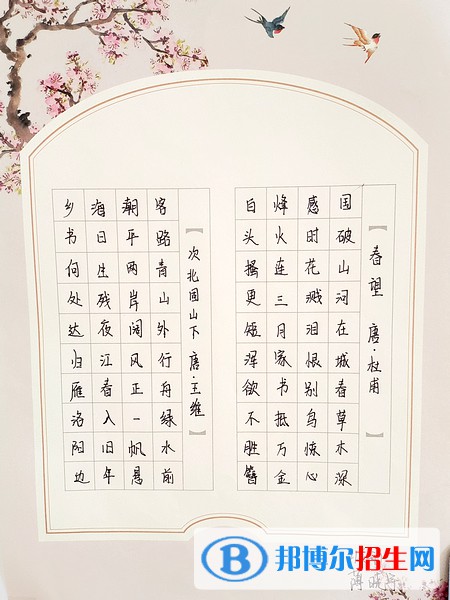 【春望 唐·杜甫】
国破山河在城春草木深
感时花溅泪恨别鸟惊心
烽火连三月家书抵万金
白头搔更短浑欲不胜簪
【次北固山下 唐·王维】
客路青山外行舟绿水前
潮平两岸阔风正一帆悬
海日生残夜江春入旧年
乡书何处达归雁洛阳边
B 邦博尔招生网